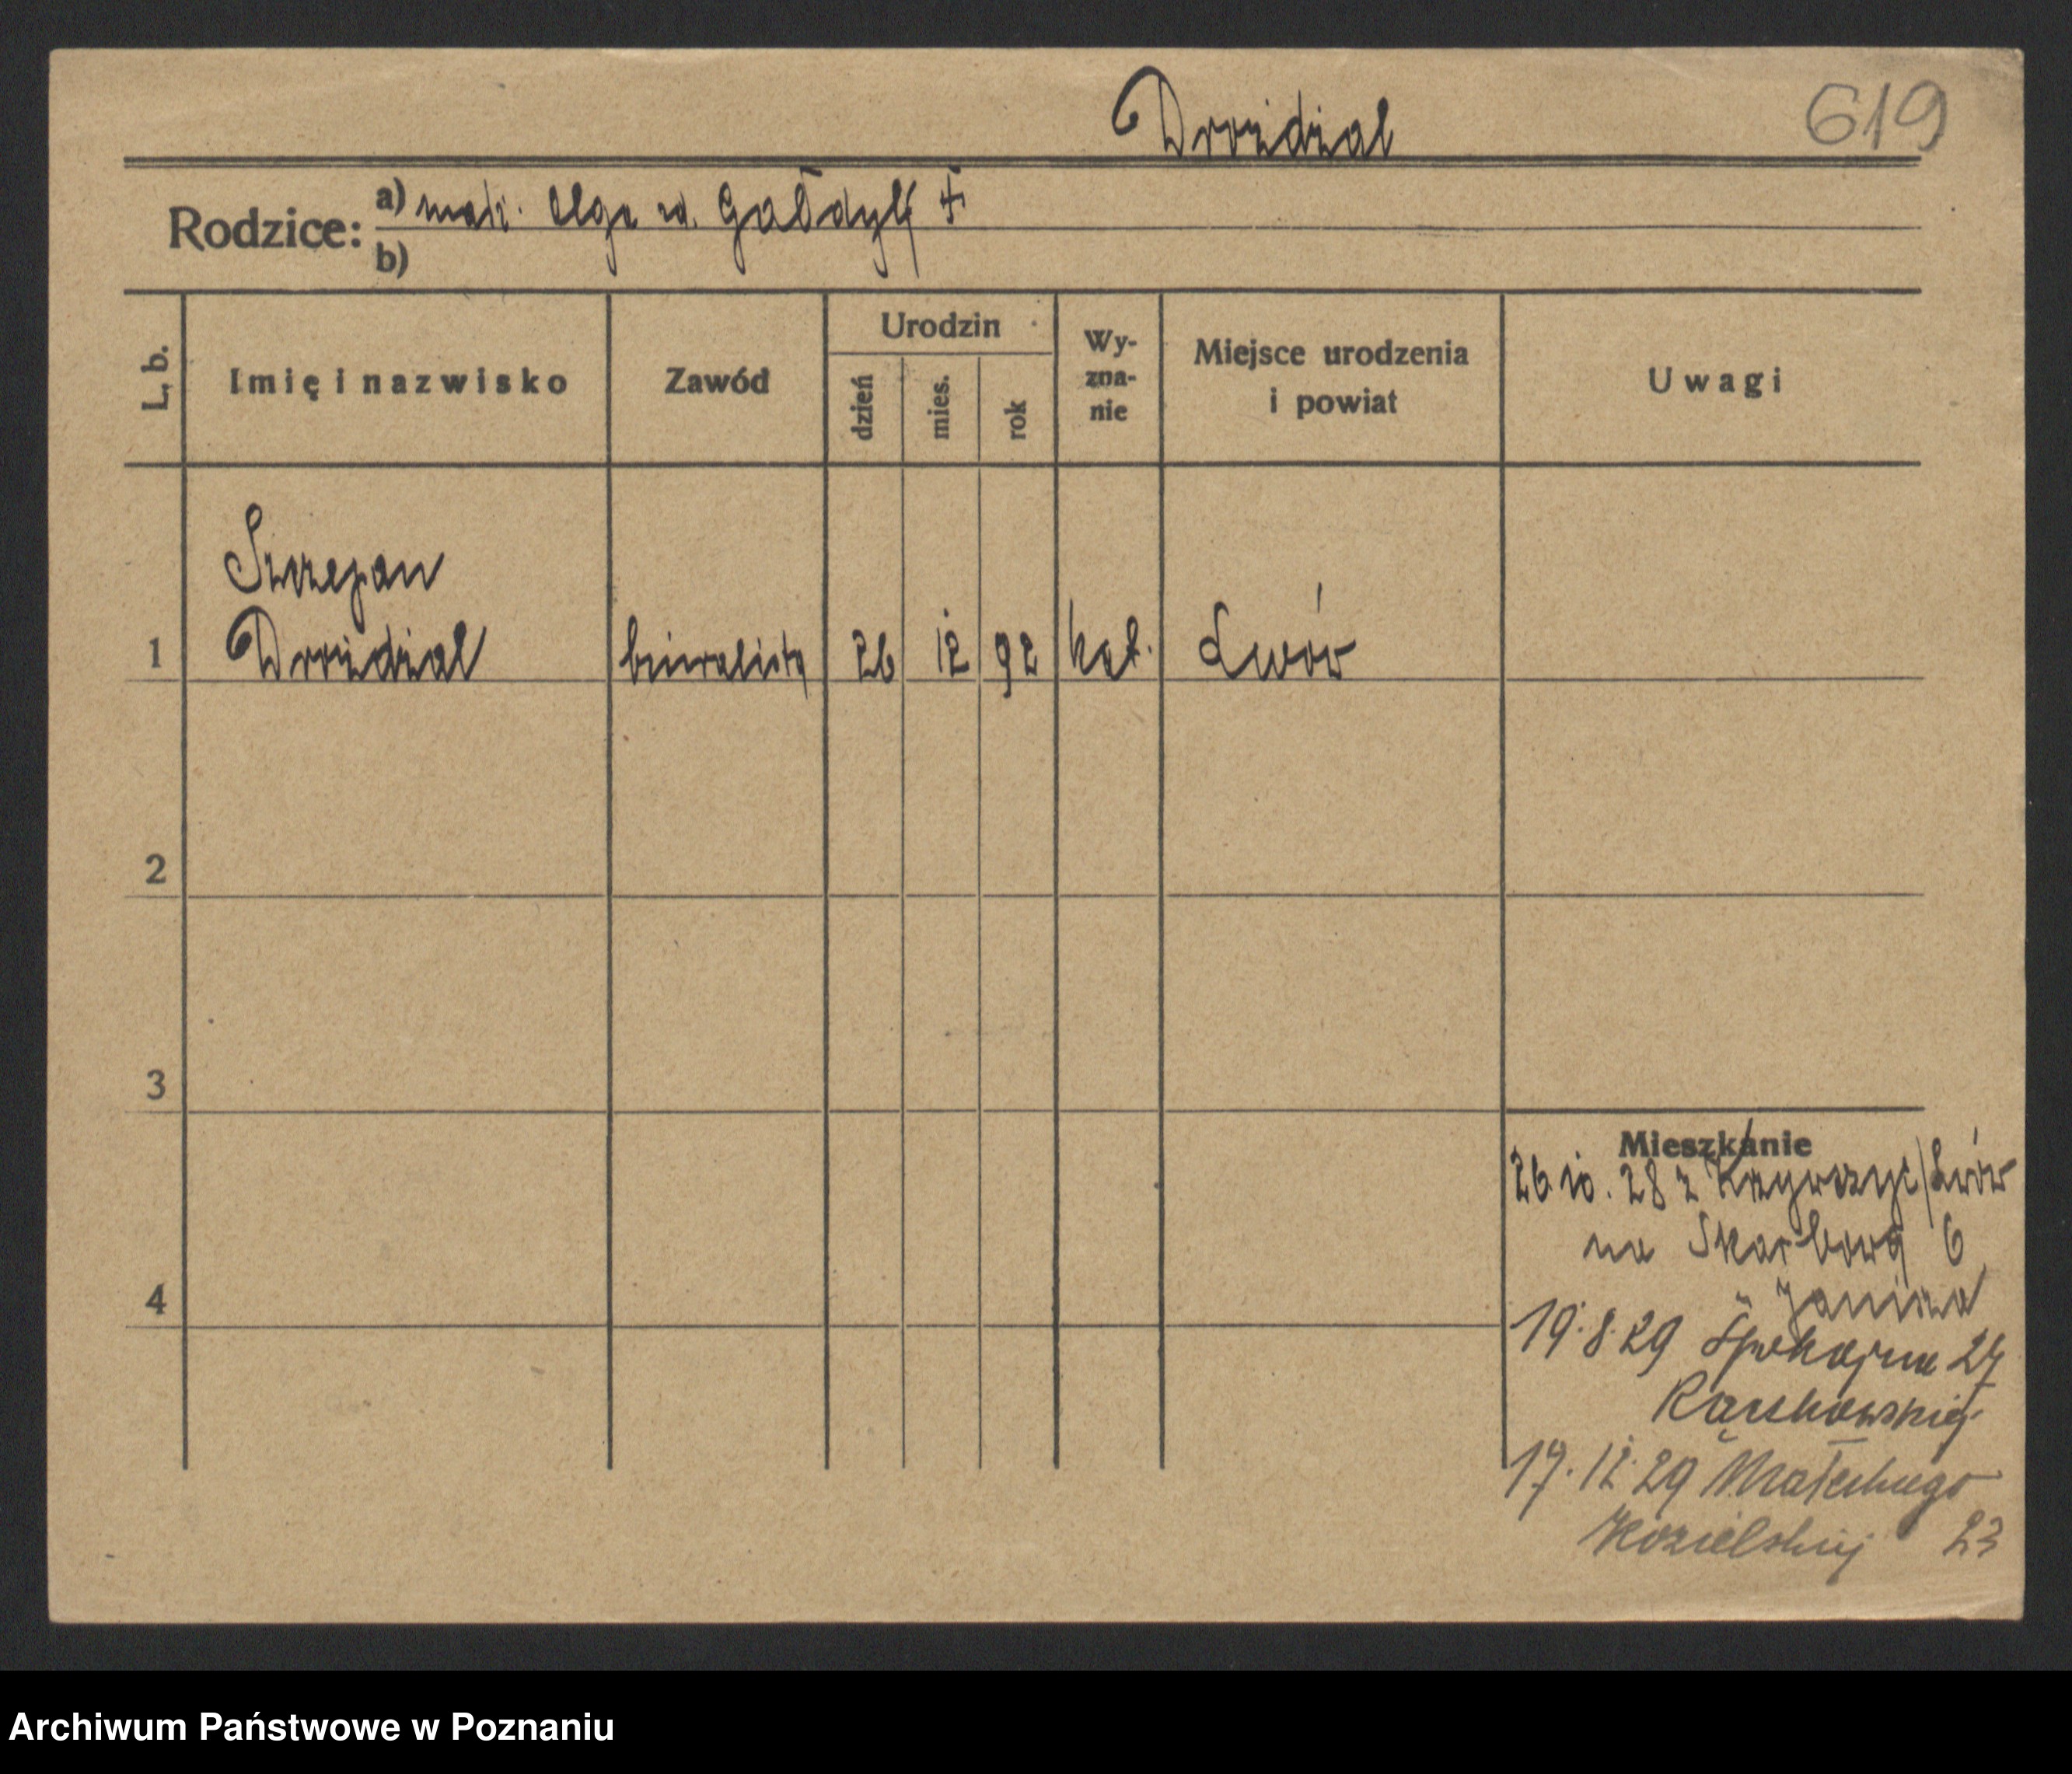 Droździal
619
Rodzice: a) matk. Olga ur. Gałdyk +
b)
L. b.
Imię i nazwisko
Zawód
Urodzin
dzień
mies.
rok
Wy-
zna-
nie
Miejsce urodzenia
i powiat
Uwagi
Szczepan
1 Droździal biuralista 26 12 92 kat. Lwów
2
3
Mieszkanie
26.10.28 z Krzywczyc/Lwów
na Skarbową 6
4
" Janina
19.8.29 Spokojna 24
17.12.29 Małeckiego
Kozielskiej 23
Archiwum Państwowe w Poznaniu